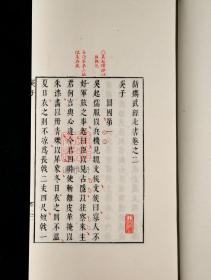 新鐫武經七書卷之二
吳子
圖國第一
吳起儒服以兵機見魏文侯文侯曰寡人不
好軍旅之事起曰臣以見占隱以往察來主
君何言與心違今君四時使斬離皮革掩以
朱漆畫以丹青爍以犀象冬日衣之則不溫
夏日衣之則不涼爲長戟二丈四尺短戟一
吳子